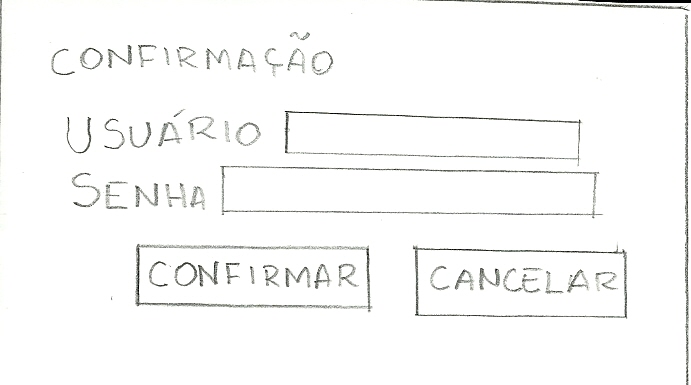 CONFIRMAÇÃO
USUÁRIO
SENHA
CONFIRMAR CANCELAR